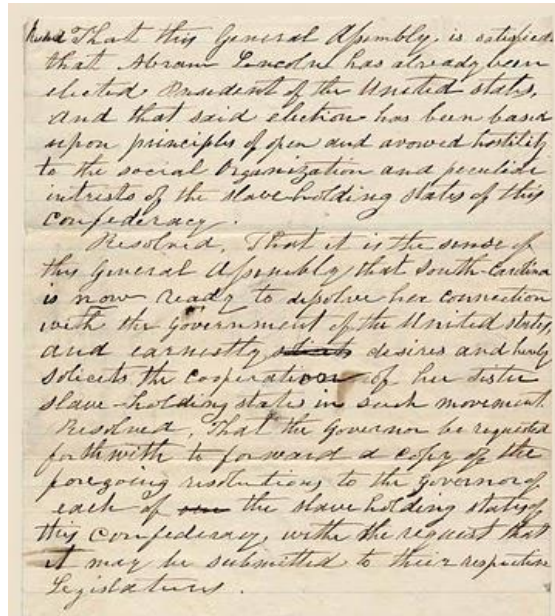 Resolved That this General Assembly, is satisfied
that Abram Lincoln has already been
elected President of the United States,
and that said election has been based
upon principles of open and avowed hostility
to the social Organization and peculiar
intrests of the slave holding states of this
Confederacy.
Resolved, That it is the sense of
this General Assembly that South-Carolina
is now ready to dissolve her connection
with the Government of the United States
and earnestly desires and hereby
solicits the cooperation of her sister
slave-holding states in such movement
Resolved, That the Governor be requested
forthwith to forward a copy of the
foregoing resolutions to the Governor of
each of the slave holding states of
this Confederacy, with the request that
it may be submitted to their respective
Legislatures.